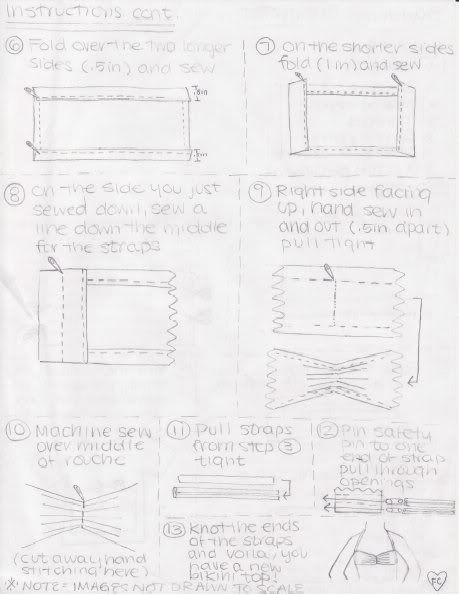 Instructions cont.
⑥ Fold over the two longer
sides (.5in) and sew
.5in
.5in
⑦ On the shorter sides
fold (1in) and sew
⑧ On the side you just
sewed down, sew a
line down the middle
for the straps
⑨ Right side facing
up, hand sew in
and out (.5in apart)
pull tight
⑩ Machine sew
over middle
of rouche
(cut away hand
stitching here)
⑪ Pull straps
from step ③
tight
⑫ Pin safety
pin to one
end of strap
pull through
openings
⑬ Knot the ends
of the straps
and voila, you
have a new
bikini top!
FC
* NOTE = IMAGES NOT DRAWN TO SCALE